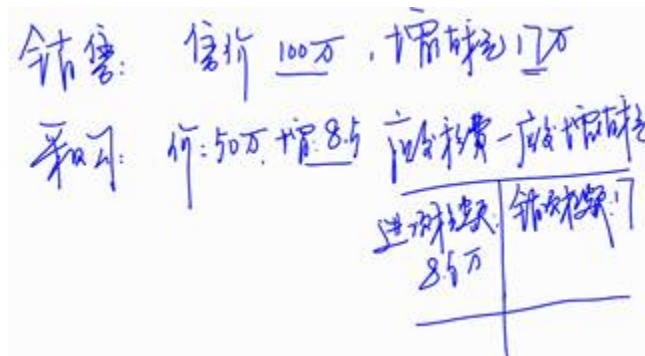 销售: 售价 100万, 增值税 17万
采购: 价:50万. 增:8.5 应交税费—应交增值税
进项税额: 销项税额:17
8.5万